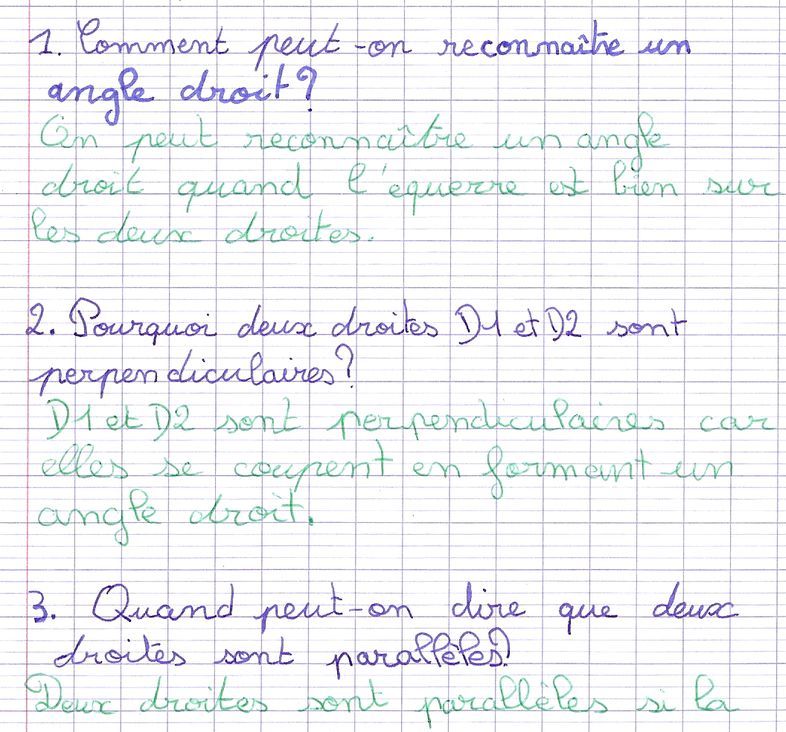 1. Comment peut-on reconnaître un
angle droit?
On peut reconnaître un angle
droit quand l'équerre est bien sur
les deux droites.
2. Pourquoi deux droites D1 et D2 sont
perpendiculaires?
D1 et D2 sont perpendiculaires car
elles se coupent en formant un
angle droit.
3. Quand peut-on dire que deux
droites sont parallèles?
Deux droites sont parallèles si la